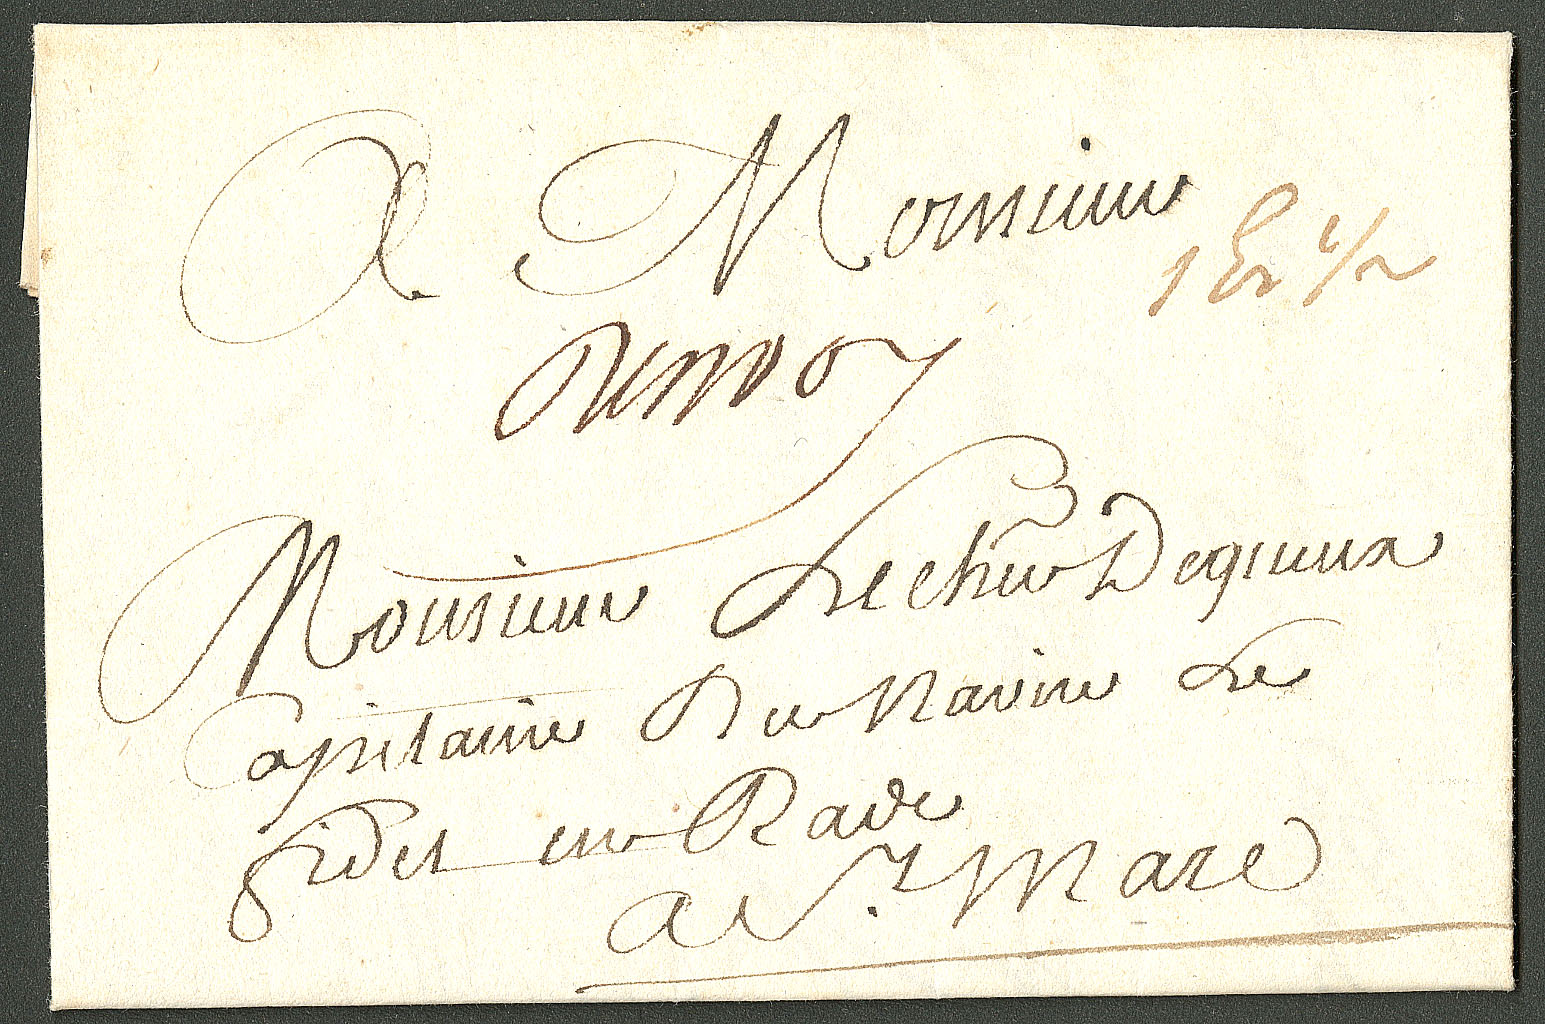 A Monsieur
1 1/2
Renvoy
Monsieur Le cher Dequeux
Capitaine Du Navire Le
fidel en Rade
a St Marc